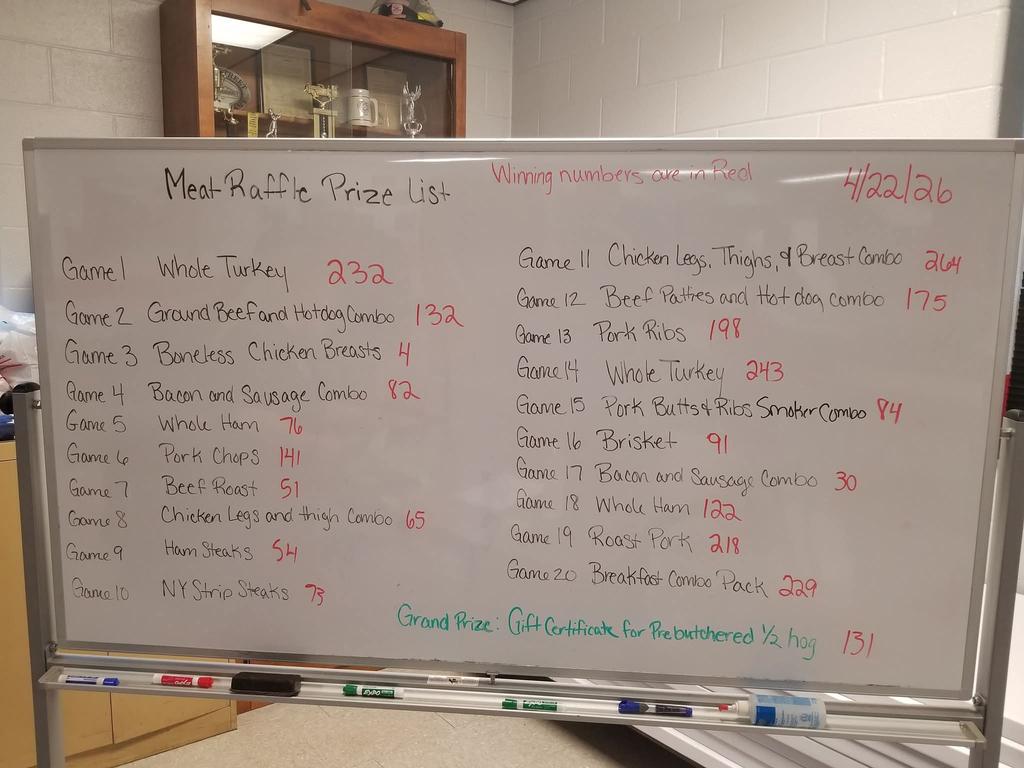 Meat Raffle Prize List
Winning numbers are in Red
4/22/26
Game 1 Whole Turkey 232
Game 2 Ground Beef and Hotdog Combo 132
Game 3 Boneless Chicken Breasts 4
Game 4 Bacon and Sausage Combo 82
Game 5 Whole Ham 76
Game 6 Pork Chops 141
Game 7 Beef Roast 51
Game 8 Chicken Legs and thigh Combo 65
Game 9 Ham Steaks 54
Game 10 NY Strip Steaks 73
Game 11 Chicken Legs, Thighs, & Breast Combo 264
Game 12 Beef Patties and Hot dog combo 175
Game 13 Pork Ribs 198
Game 14 Whole Turkey 243
Game 15 Pork Butts & Ribs Smoker Combo 84
Game 16 Brisket 91
Game 17 Bacon and Sausage Combo 30
Game 18 Whole Ham 122
Game 19 Roast Pork 218
Game 20 Breakfast Combo Pack 229
Grand Prize: Gift Certificate for Prebutchered 1/2 hog 131
EXPO